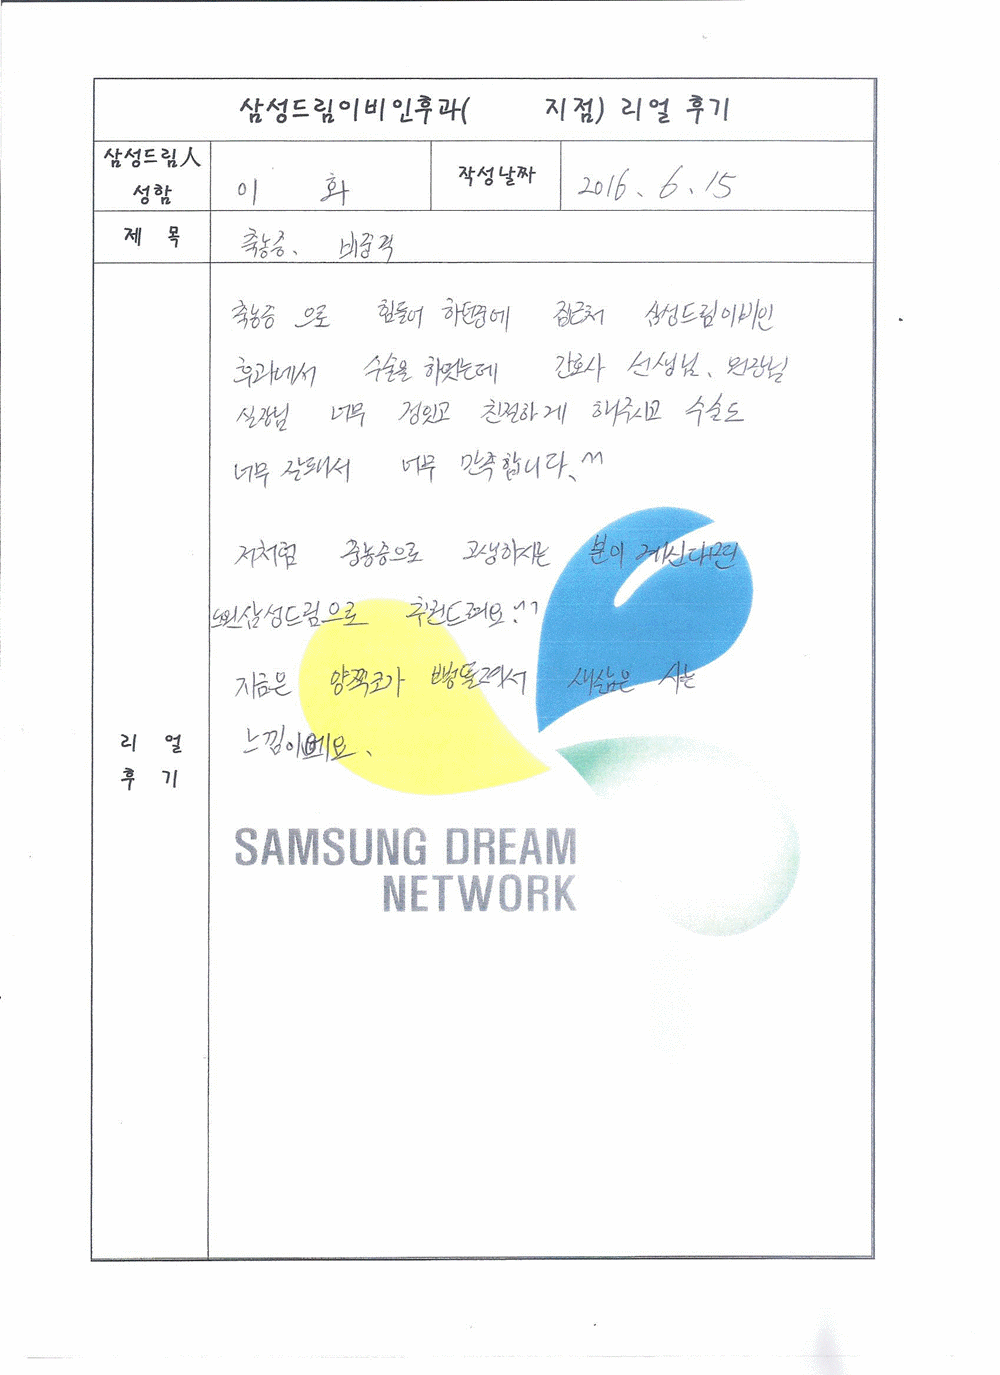 삼성드림이비인후과(      지점) 리얼 후기
삼성드림人 성함
이 화
작성날짜
2016. 6. 15
제 목
축농증, 비중격
리 얼 후 기
축농증 으로 힘들어 하던중에 집근처 삼성드림이비인
후과에서 수술을 하였는데 간호사 선생님, 원장님
실장님 너무 정있고 친절하게 해주시고 수술도
너무 잘되서 너무 만족합니다. ^^
저처럼 축농증으로 고생하시는 분이 계신다면
삼성드림으로 추천드려요 ^^
지금은 양쪽코가 뻥뚫려서 새삶은 사는
느낌이에요.
SAMSUNG DREAM
NETWORK